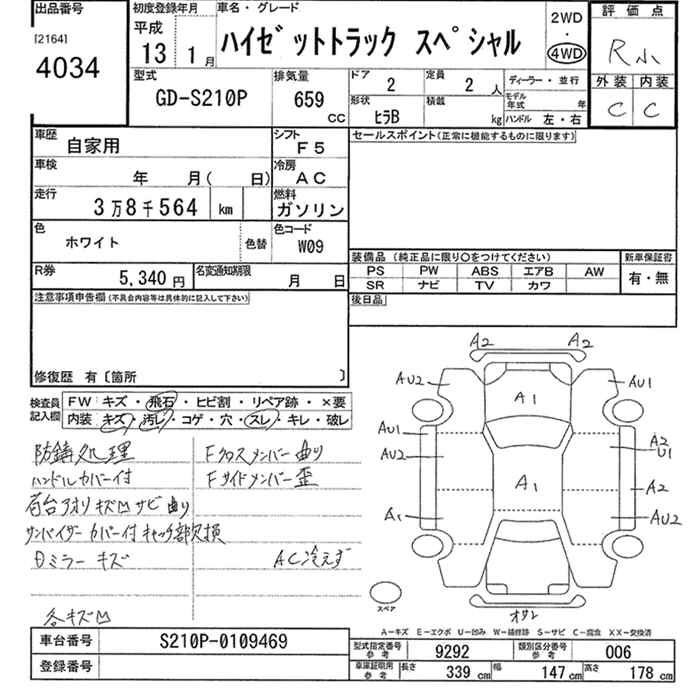 出品番号
[2164]
4034
初度登録年月
平成
13 1月
車名・グレード
ハイゼットトラック スペシャル
2WD
・
4WD
評価点
R小
外装 内装
C C
型式
GD-S210P
排気量
659
CC
ドア
2
定員
2人
ディーラー・並行
形状
ヒラB
積載
kg
モデル年式 年
ハンドル 左・右
車歴
自家用
シフト
F5
車検
年 月( 日)
冷房
AC
走行
3万8千564 km
燃料
ガソリン
色
ホワイト
色替
色コード
W09
R券
5,340円
名変通知期限
月 日
セールスポイント(正常に機能するものに限ります)
装備品 (純正品に限り○をつけてください)
PS PW ABS エアB AW
SR ナビ TV カワ
新車保証書
有・無
後日品
注意事項申告欄(不具合内容等は具体的に記入して下さい)
修復歴 有〔箇所 〕
検査員記入欄
FW キズ・飛石・ヒビ割・リペア跡・×要
内装 キズ・汚レ・コゲ・穴・スレ・キレ・破レ
防錆処理
ハンドルカバー付
荷台アオリキズ凹サビ曲り
サンバイザーカバー付キャッチ部欠損
ミラーキズ
各キズ凹
Fクロスメンバー曲り
Fサイドメンバー歪
AC冷えず
A2 A2
AU2 AU1
A1
AU1
AU2
A2
U1
A1
A2
A1
AU2
スペア
A-キズ E-エクボ U-凹み W-補修跡 S-サビ C-腐食 XX-交換済
車台番号
S210P-0109469
登録番号
型式指定番号
参考
9292
類別区分番号
参考
006
車庫証明用
参考
長さ
339 cm
幅
147 cm
高さ
178 cm